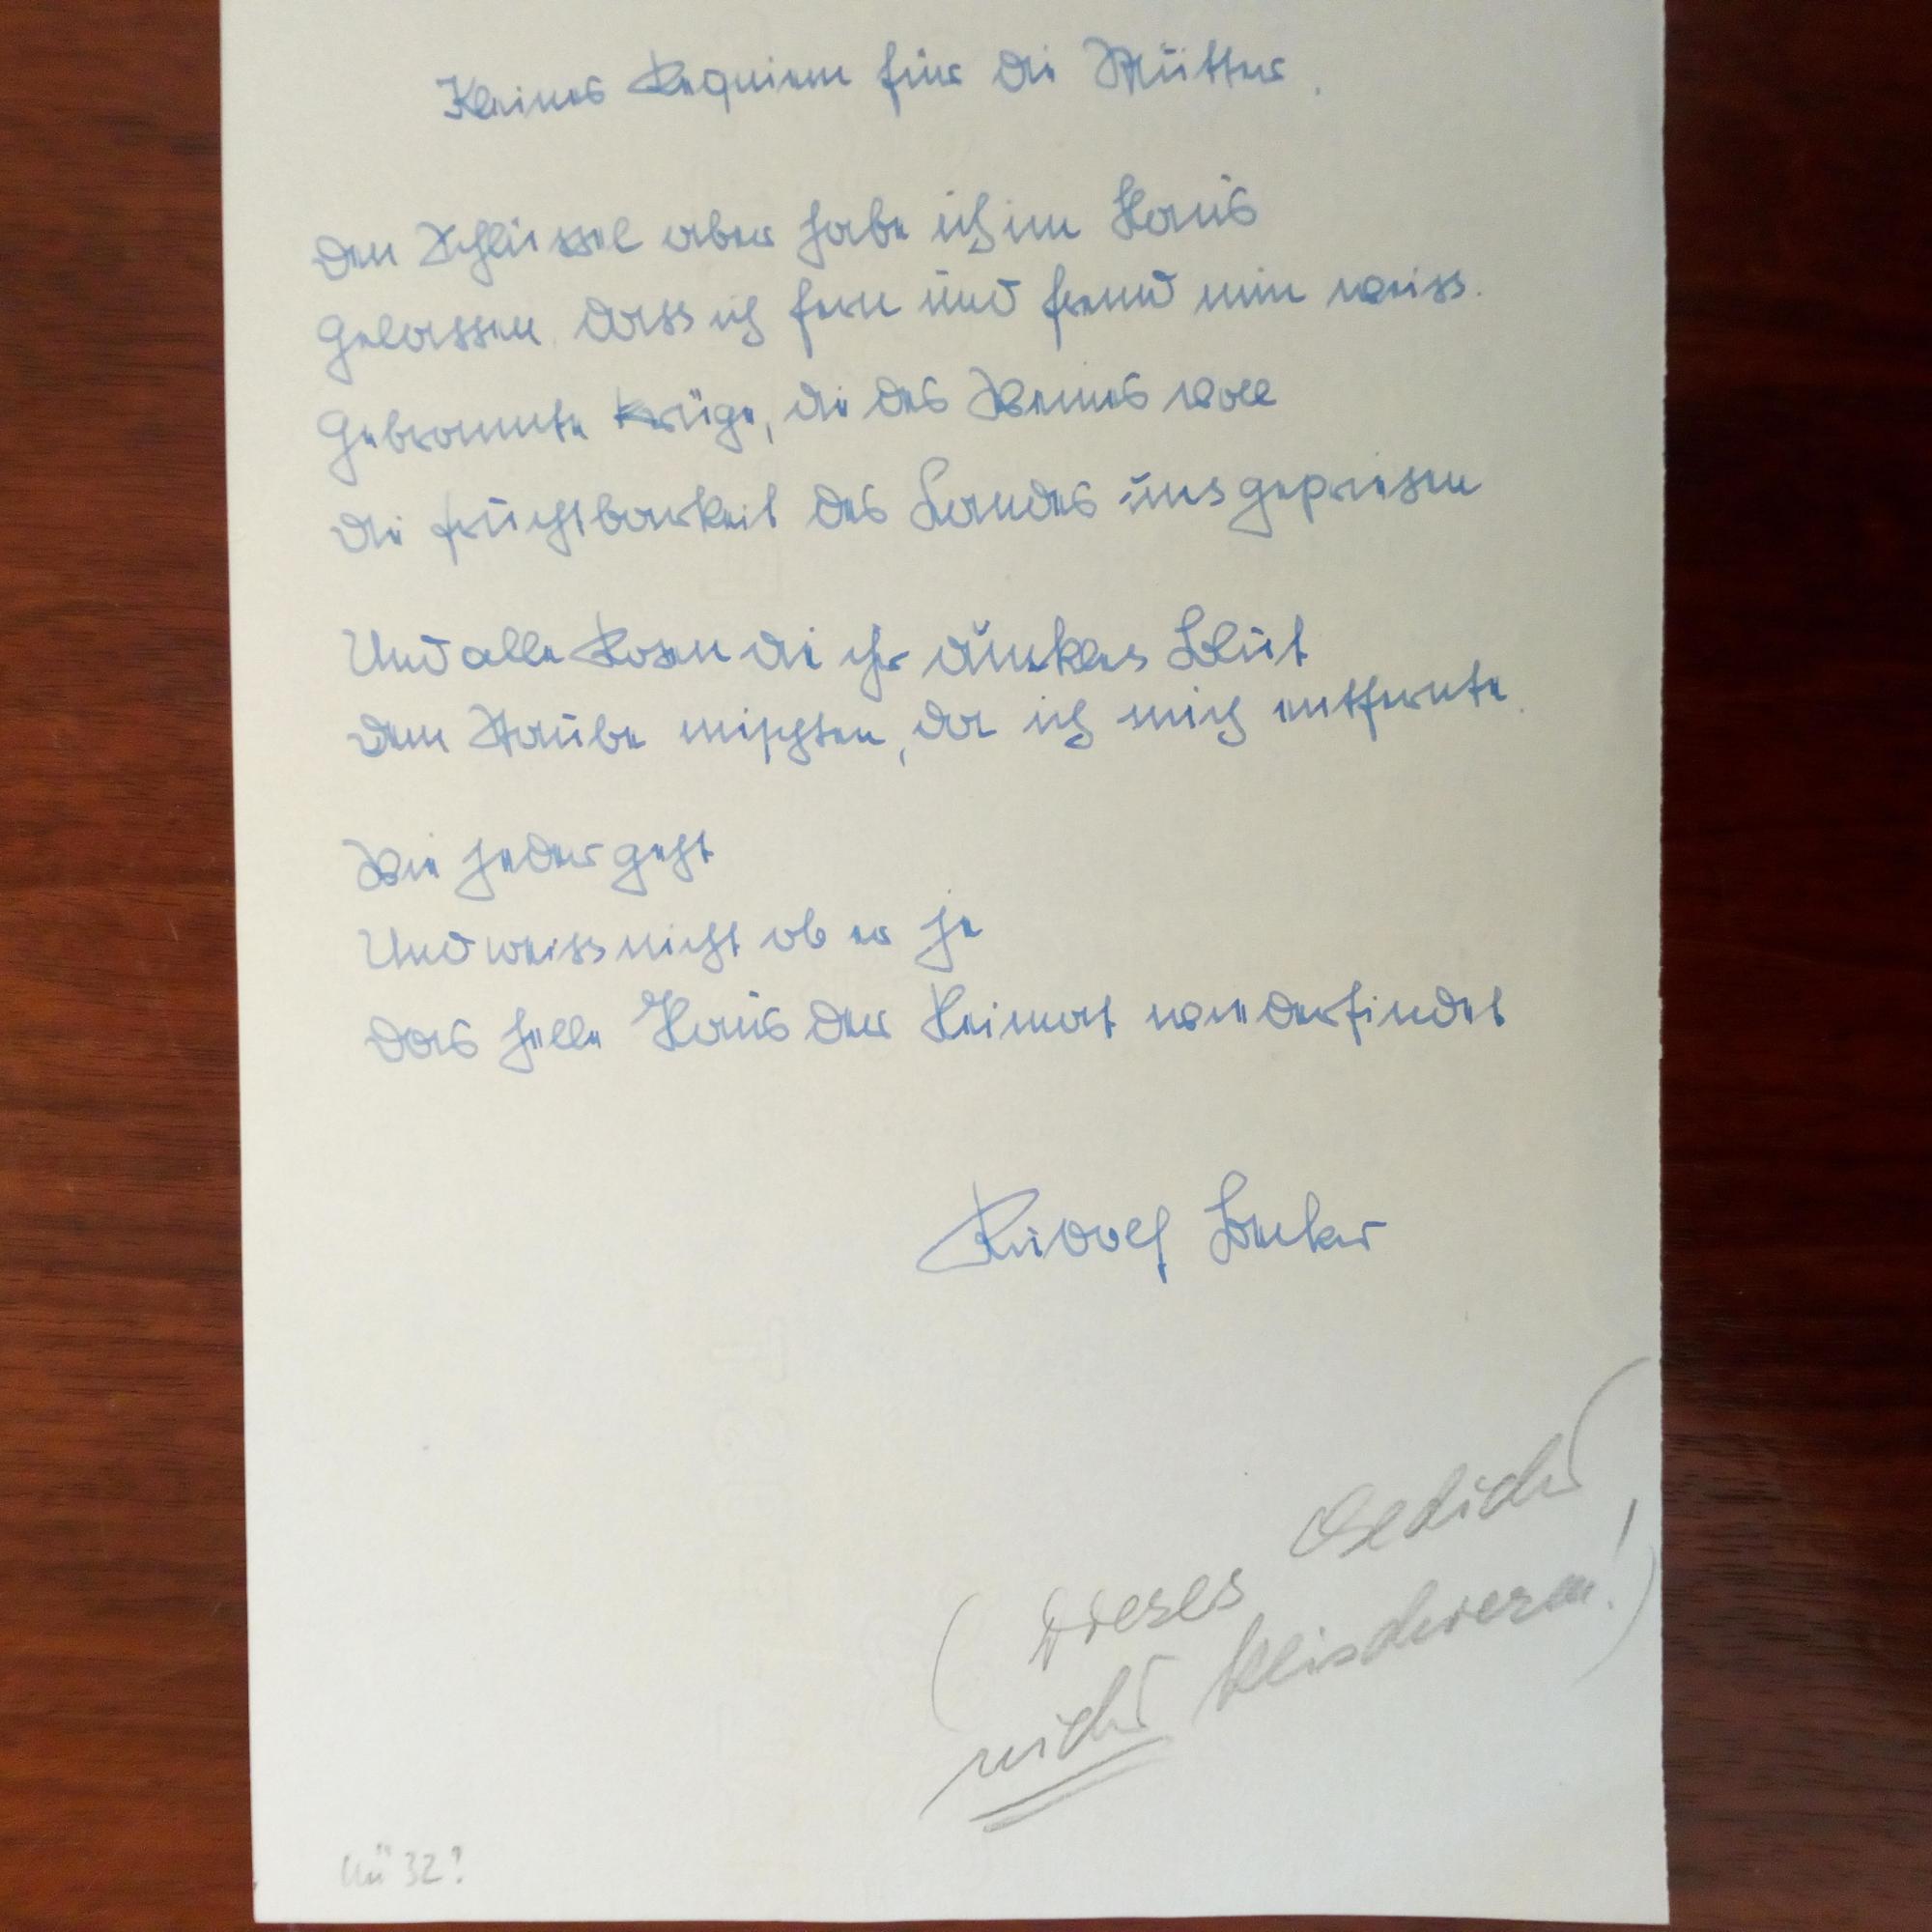 Kleines Requiem für die Mütter.
Den Schlüssel aber habe ich im Haus
Gelassen, dass ich fern und fremd nun weiss.
Gebrannte Krüge, die des Weines voll
die Fruchtbarkeit des Landes uns gepriesen
Und alle Rosen die ihr dunkles Blut
dem Staube mischten, da ich mich entfernte.
Wie jeder geht
Und weiss nicht ob er je
das helle Haus der Heimat wiederfindet
Rudolf
(Dieses Gedicht
nicht klischieren!)
32?